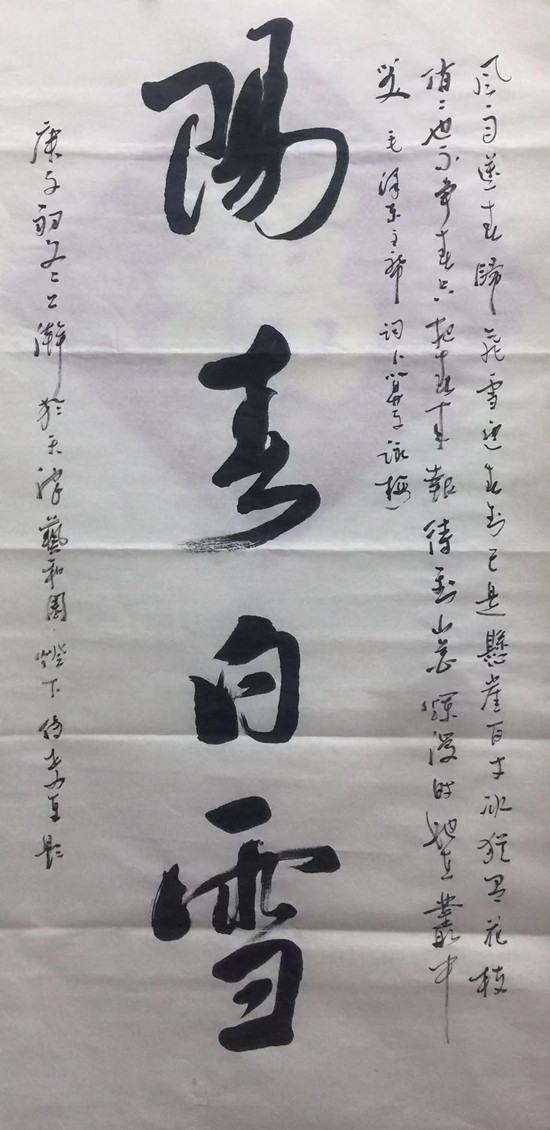 风雨送春歸飛雪迎春到已是懸崖百丈冰猶有花枝
俏〻也不爭春只把春來報待到山花爛漫時她在叢中
笑 毛澤東主席詞卜算子詠梅
陽春白雪
庚子初冬之上澣於天津藝和園燈下題